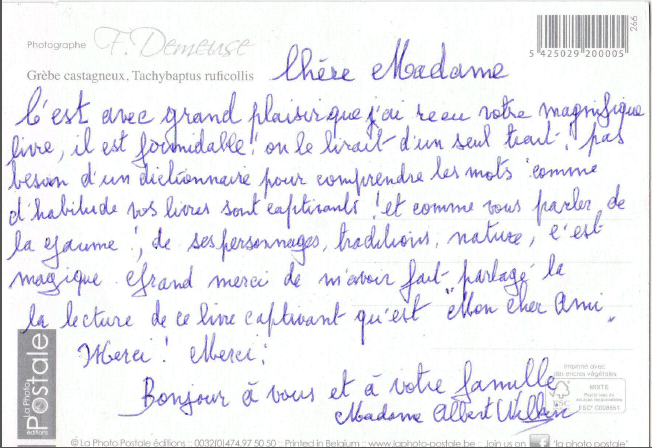 Photographe F. Demeuse
5 425029 200005
266
Grèbe castagneux, Tachybaptus ruficollis
Chère Madame
C'est avec grand plaisir que j'ai reçu votre magnifique
livre, il est formidable! on le lirait d'un seul trait, pas
besoin d'un dictionnaire pour comprendre les mots comme
d'habitude vos livres sont captivants! et comme vous parler de
la Gaume!, de ses personnages, traditions, nature, c'est
magique. Grand merci de m'avoir fait partagé la
la lecture de ce livre captivant qu'est "Mon cher Ami"
Merci! Merci!
Bonjour à vous et à votre famille
Madame Albert
La Photo Postale éditions
Imprimé avec
des encres végétales
FSC
MIXTE
© La Photo Postale éditions :: 0032(0)474.97 50 50 :: Printed in Belgium :: www.laphoto-postale.be :: Join us on f "la photo postale"